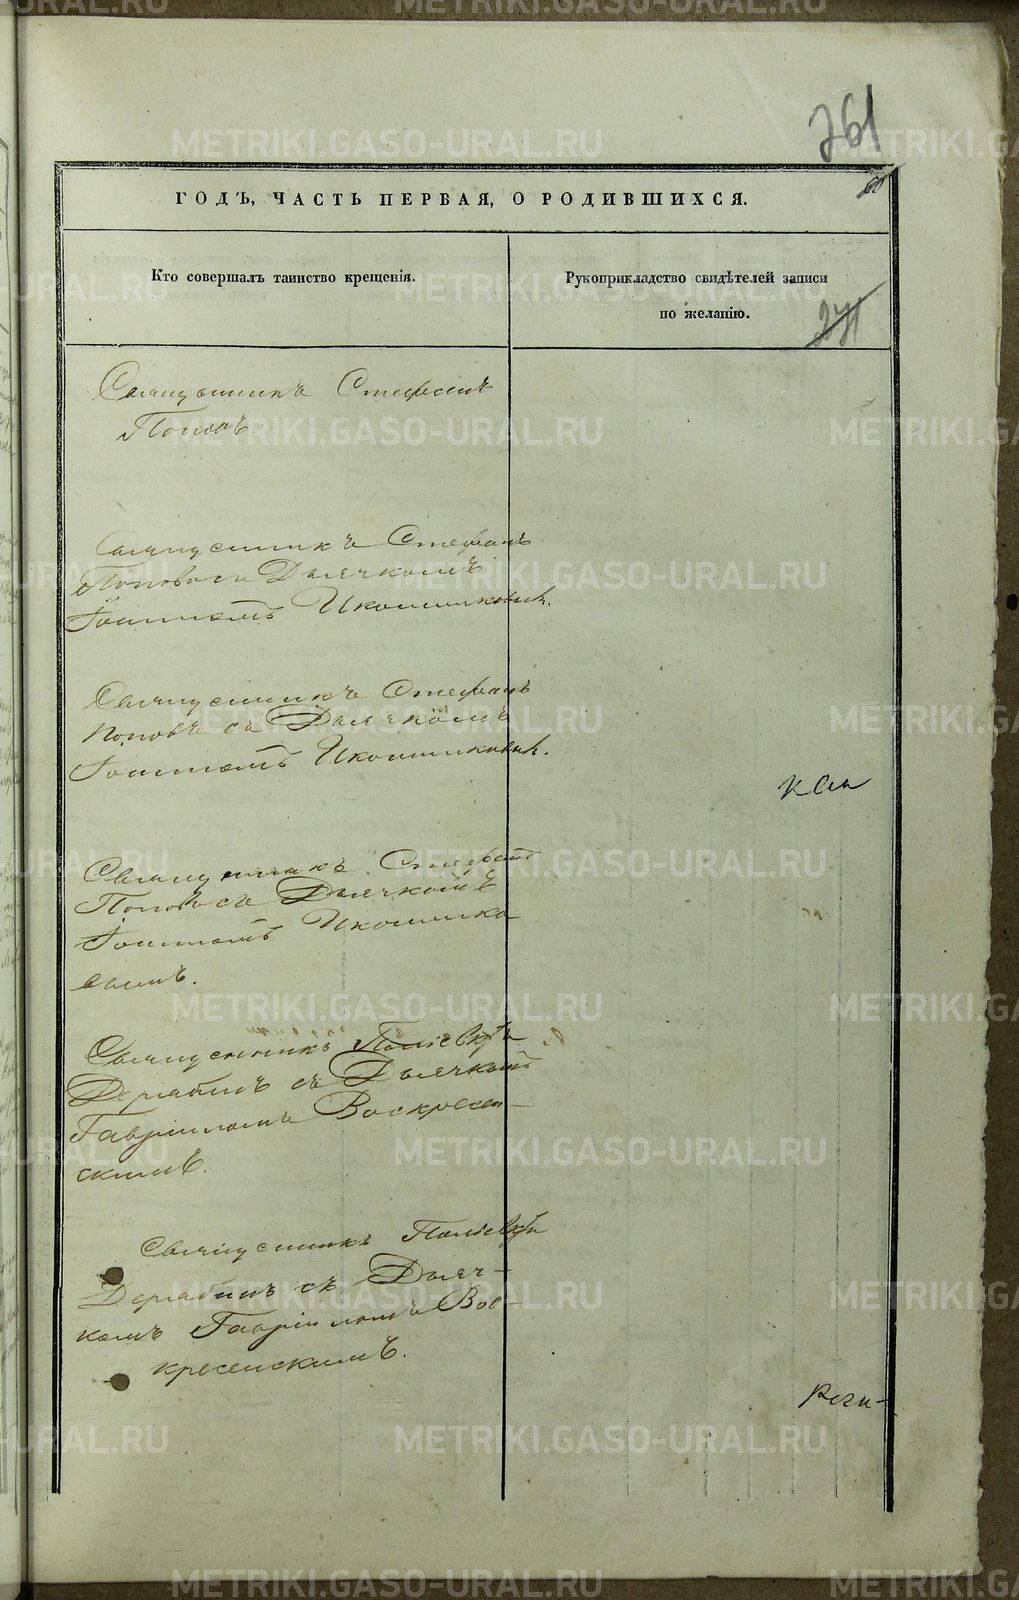 261
60
ГОДЪ, ЧАСТЬ ПЕРВАЯ, О РОДИВШИХСЯ.
Кто совершалъ таинство крещенія.
Рукоприкладство свидѣтелей записи
по желанію.
271
Священникъ Стефанъ
Поповъ.
Священникъ Стефанъ
Поповъ съ Дьячкомъ
Іоанномъ Иконниковым.
Священникъ Стефанъ
Поповъ съ Дьячкомъ
Іоанномъ Иконниковым.
Священникъ Стефанъ
Поповъ съ Дьячкомъ
Іоанномъ Иконнико
вымъ.
Священникъ Поліевктъ
Дерябинъ съ Дьячкомъ
Гавріиломъ Воскресен-
скимъ.
Священникъ Поліевктъ
Дерябинъ съ Дьяч-
комъ Гавріиломъ Вос-
кресенскимъ.
METRIKI.GASO-URAL.RU